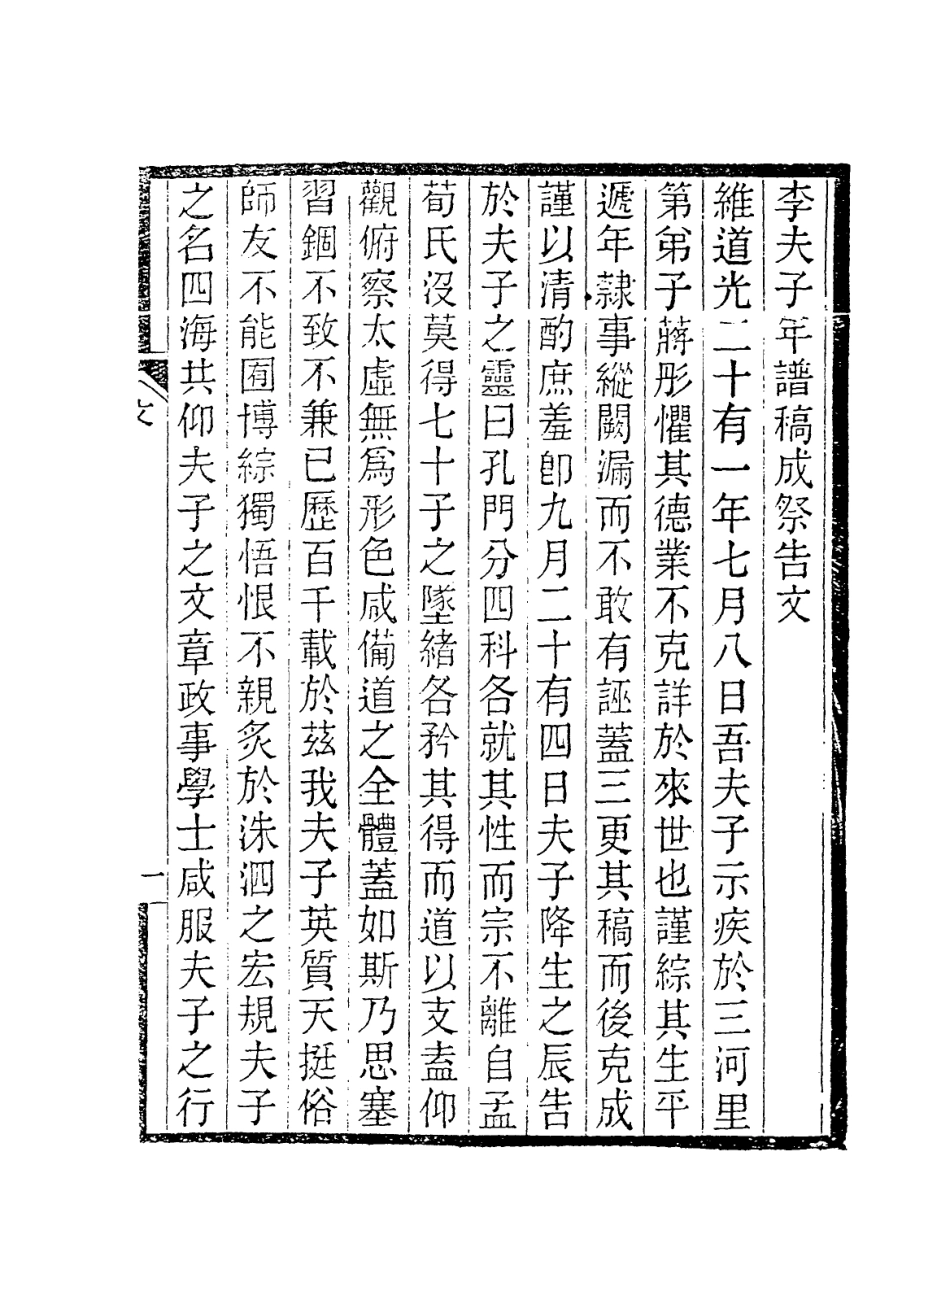 李夫子年譜稿成祭告文
維道光二十有一年七月八日吾夫子示疾於三河里
第弟子蔣彤懼其德業不克詳於來世也謹綜其生平
遞年隸事縱闕漏而不敢有誣蓋三更其稿而後克成
謹以清酌庶羞卽九月二十有四日夫子降生之辰告
於夫子之靈曰孔門分四科各就其性而宗不離自孟
荀氏沒莫得七十子之墜緒各矜其得而道以支盍仰
觀俯察太虛無爲形色咸備道之全體蓋如斯乃思塞
習錮不致不兼已歷百千載於茲我夫子英質天挺俗
師友不能囿博綜獨悟恨不親炙於洙泗之宏規夫子
之名四海共仰夫子之文章政事學士咸服夫子之行
文
一